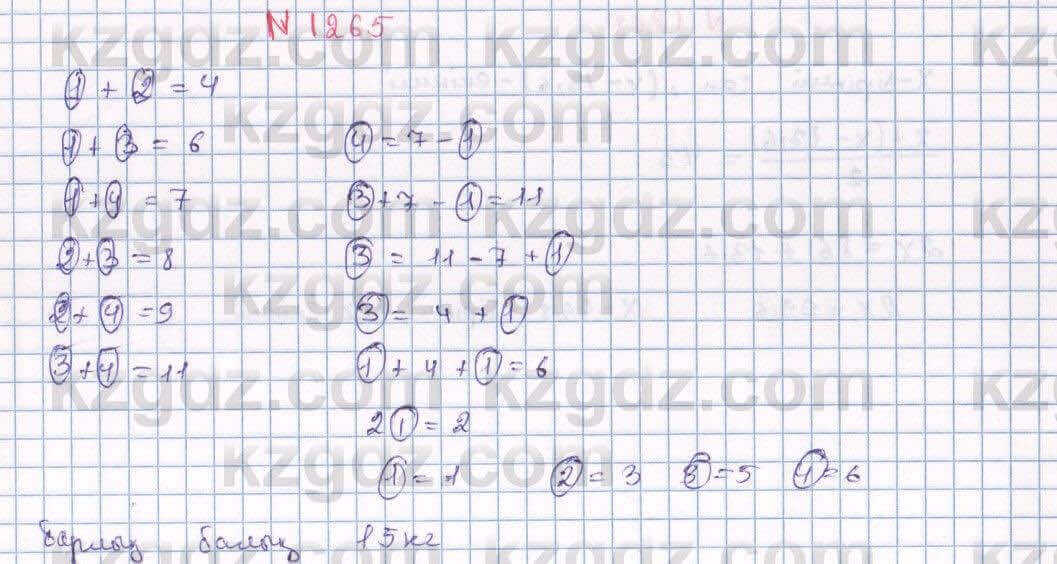 N 1265
① + ② = 4
① + ③ = 6 ④ = 7 - ①
① + ④ = 7 ③ + 7 - ① = 11
② + ③ = 8 ③ = 11 - 7 + ①
② + ④ = 9 ③ = 4 + ①
③ + ④ = 11 ① + 4 + ① = 6
2① = 2
① = 1 ② = 3 ③ = 5 ④ = 6
барлық балық 15 кг
kzgdz.com